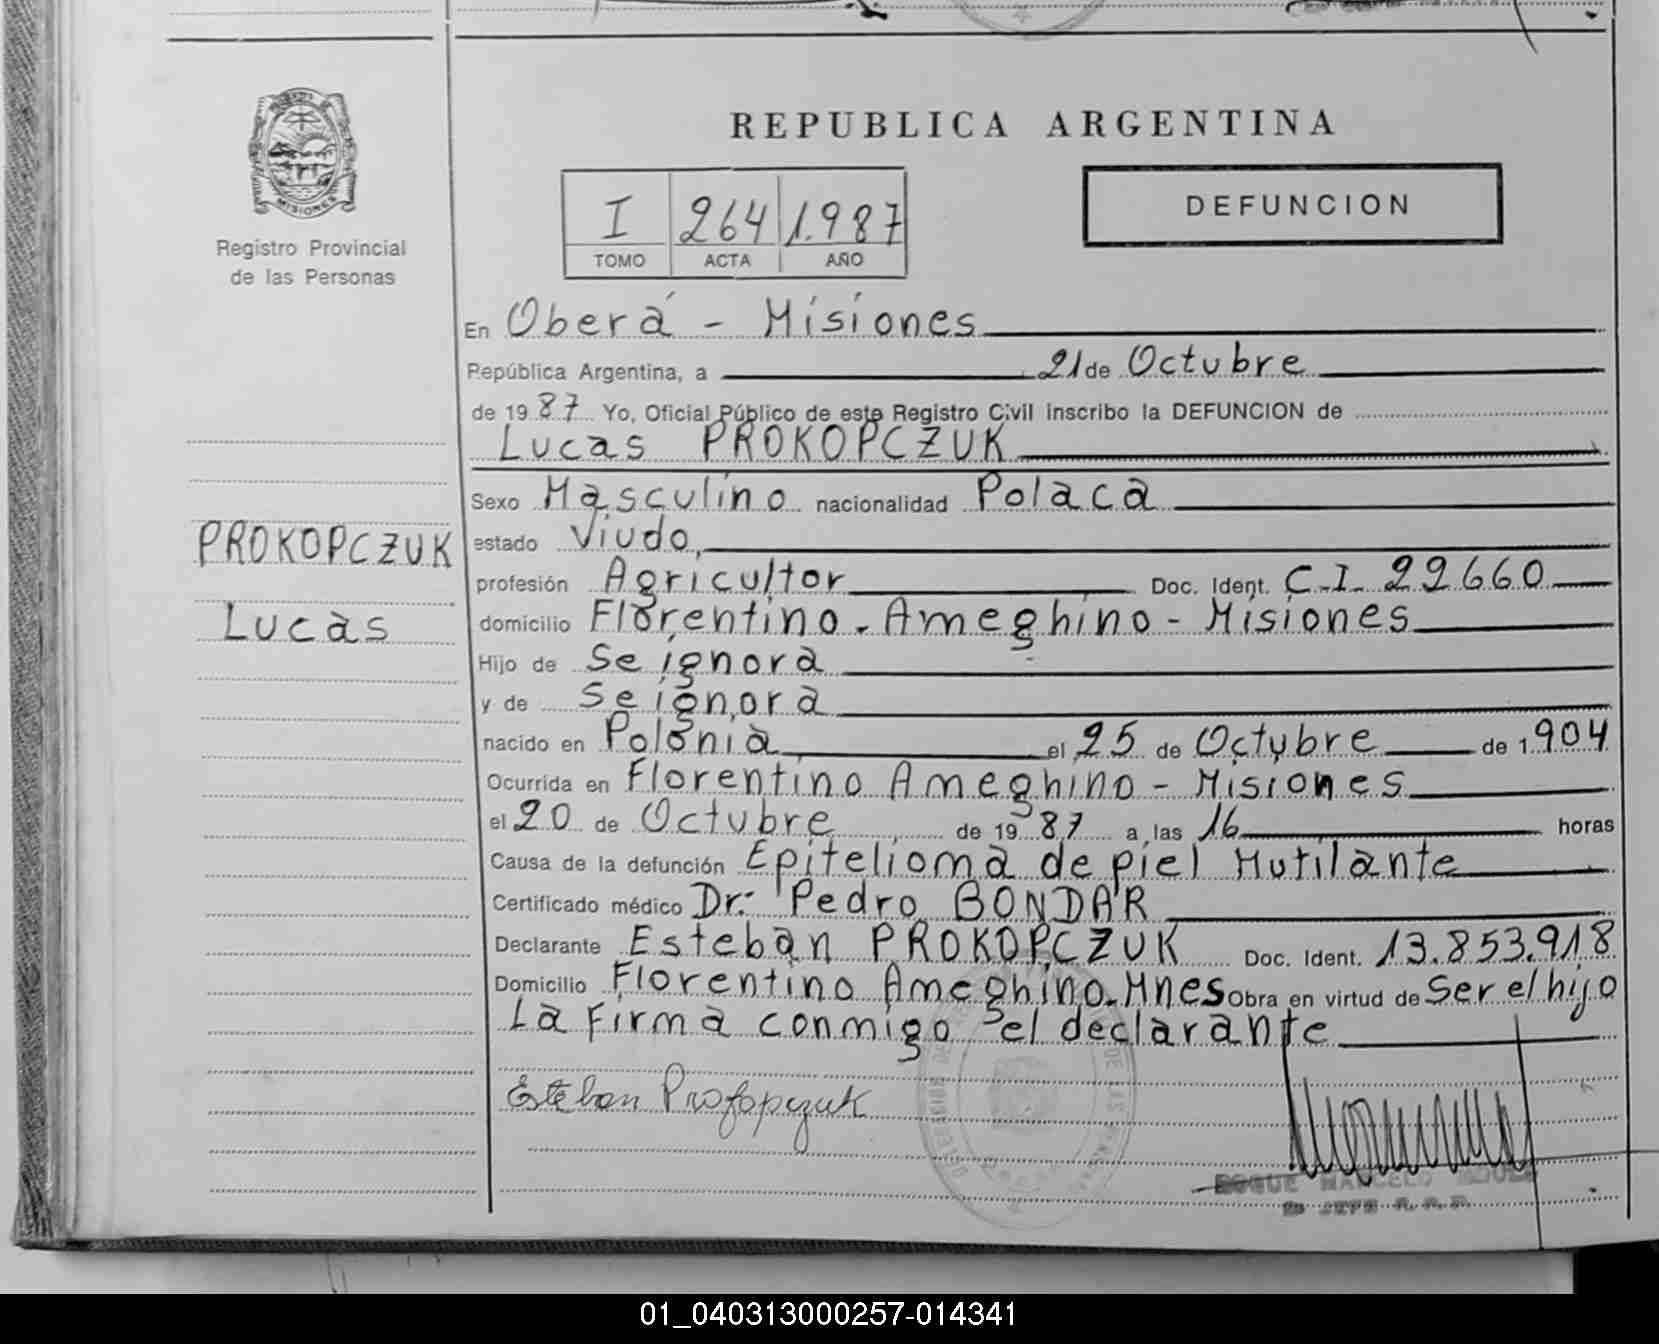 REPUBLICA ARGENTINA
MISIONES
Registro Provincial
de las Personas
I 264 1.987
TOMO ACTA AÑO
DEFUNCION
En Oberá - Misiones
República Argentina, a 21 de Octubre
de 1987 Yo, Oficial Público de este Registro Civil inscribo la DEFUNCION de
Lucas PROKOPCZUK
Sexo Masculino nacionalidad Polaca
PROKOPCZUK
Lucas
estado Viudo,
profesión Agricultor Doc. Ident. C.I. 22660
domicilio Florentino Ameghino - Misiones
Hijo de Se ignora
y de Se ignora
nacido en Polonia el 25 de Octubre de 1.904
Ocurrida en Florentino Ameghino - Misiones
el 20 de Octubre de 1987 a las 16 horas
Causa de la defunción Epitelioma de piel Mutilante
Certificado médico Dr. Pedro BONDAR
Declarante Esteban PROKOPCZUK Doc. Ident. 13.853.918
Domicilio Florentino Ameghino-Mnes Obra en virtud de Ser el hijo
La Firma conmigo el declarante
Esteban Prokopczuk
ROQUE MARCELO
01_040313000257-014341